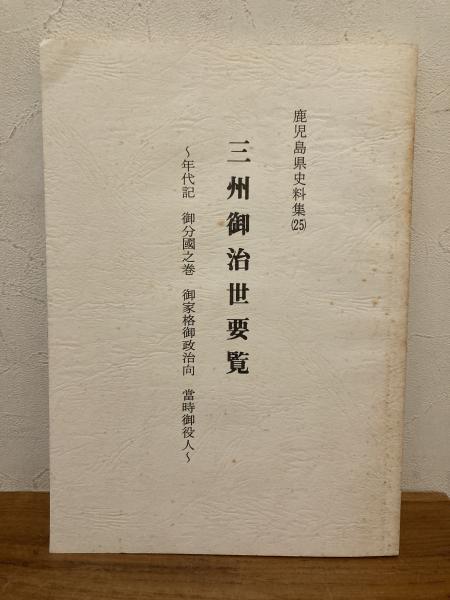 鹿児島県史料集(25)
三州御治世要覧
～年代記　御分國之巻　御家格御政治向　當時御役人～